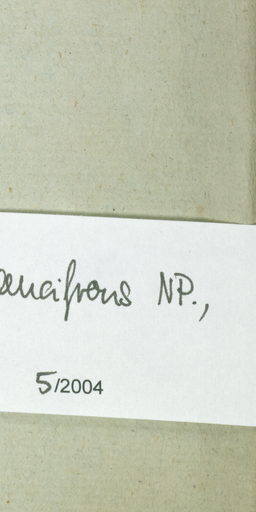 aucifrons NP.,
5/2004